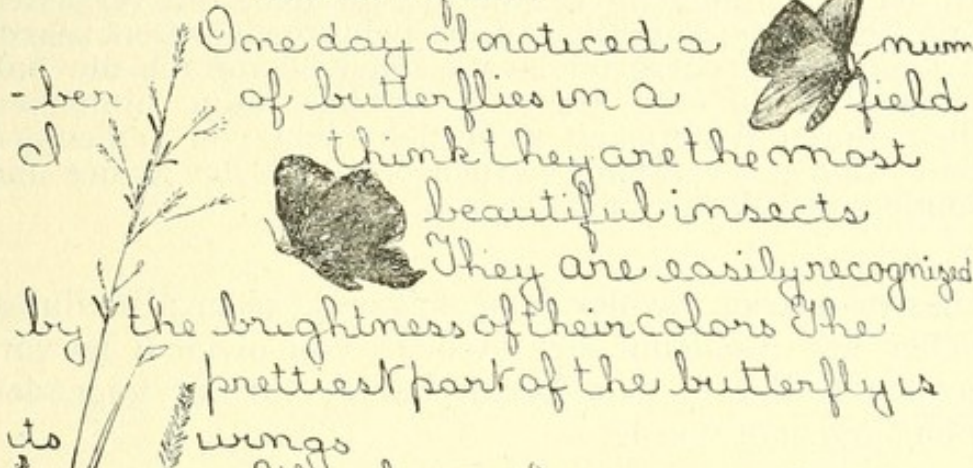 One day I noticed a num
-ber of butterflies in a field
I think they are the most
beautiful insects
They are easily recognized
by the brightness of their colors The
prettiest part of the butterfly is
its wings